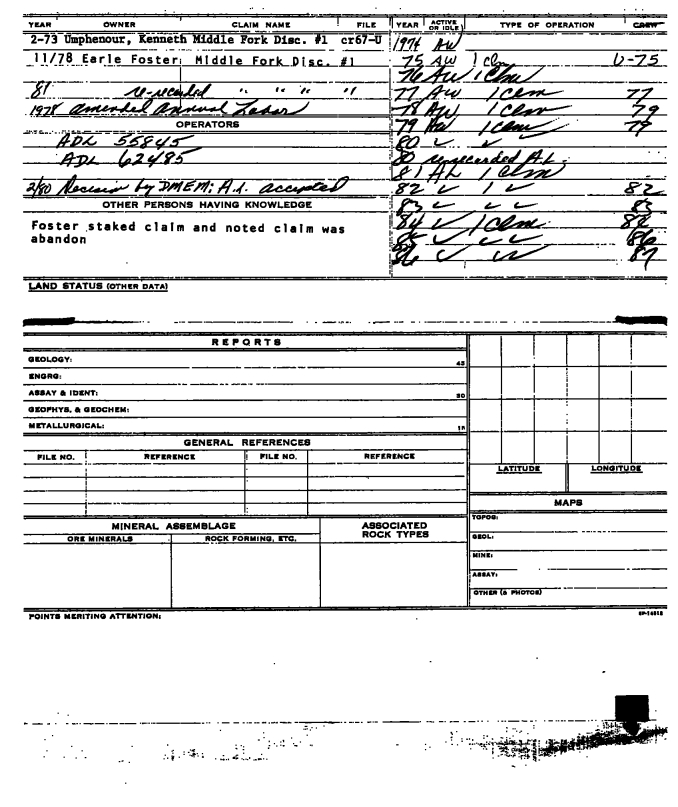 YEAR OWNER CLAIM NAME FILE YEAR ACTIVE OR IDLE TYPE OF OPERATION CREW
2-73 Umphenour, Kenneth Middle Fork Disc. #1 cr67-U 1974 AW
11/78 Earle Foster Middle Fork Disc. #1 75 AW 1 clm U-75
76 AW 1 Clm
81 re-recorded " " " " 77 AW 1 Clm 77
1978 amended Annual Labor 78 AW 1 Clm 79
OPERATORS 79 AW 1 Clm 79
ADL 55845 80 ✓ ✓ ✓
ADL 62485 80 re-recorded A.L.
81 AL 1 Clm
2/80 Decision by DMEM: A.L. accepted 82 ✓ 1 ✓ 82
OTHER PERSONS HAVING KNOWLEDGE 83 ✓ ✓ ✓ 83
Foster staked claim and noted claim was 84 ✓ 1 Clm 84
abandon 85 ✓ ✓ ✓ 86
86 ✓ ✓✓ 87
LAND STATUS (OTHER DATA)
REPORTS
GEOLOGY: 45
ENGRG:
ASSAY & IDENT: 30
GEOPHYS. & GEOCHEM:
METALLURGICAL: 15
GENERAL REFERENCES
FILE NO. REFERENCE FILE NO. REFERENCE
LATITUDE LONGITUDE
MAPS
MINERAL ASSEMBLAGE ASSOCIATED ROCK TYPES TOPOS:
ORE MINERALS ROCK FORMING, ETC. GEOL:
MINE:
ASSAY:
OTHER (& PHOTOS)
POINTS MERITING ATTENTION: